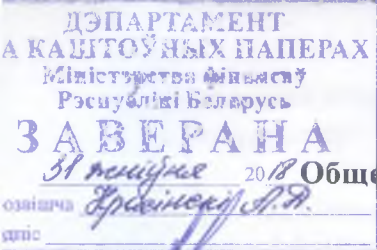 ДЭПАРТАМЕНТ
А КАШТОЎНЫХ ПАПЕРАХ
Міністэрства фінансаў
Рэспублікі Беларусь
ЗАВЕРАНА
31 жніўня 2018 Обще
озвішча
дпіс